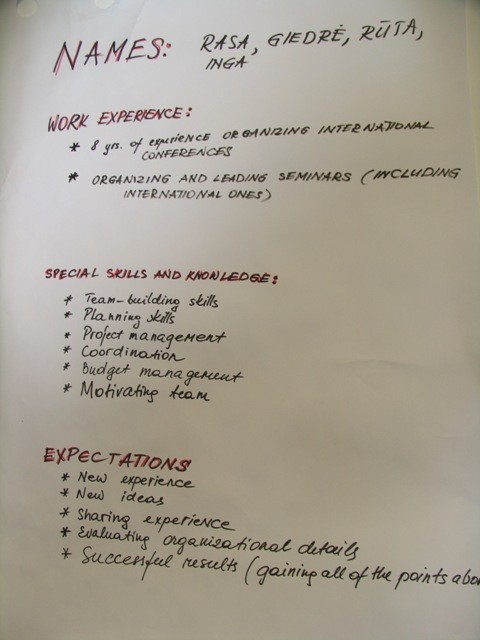 NAMES: RASA, GIEDRĖ, RŪTA,
INGA
WORK EXPERIENCE:
* 8 yrs. of experience ORGANIZING INTERNATIONAL
CONFERENCES
* ORGANIZING AND LEADING SEMINARS (INCLUDING
INTERNATIONAL ONES)
SPECIAL SKILLS AND KNOWLEDGE:
* Team-building skills
* Planning skills
* Project management
* Coordination
* Budget management
* Motivating team
EXPECTATIONS
* New experience
* New ideas
* Sharing experience
* Evaluating organizational details
* Successful results (gaining all of the points abo